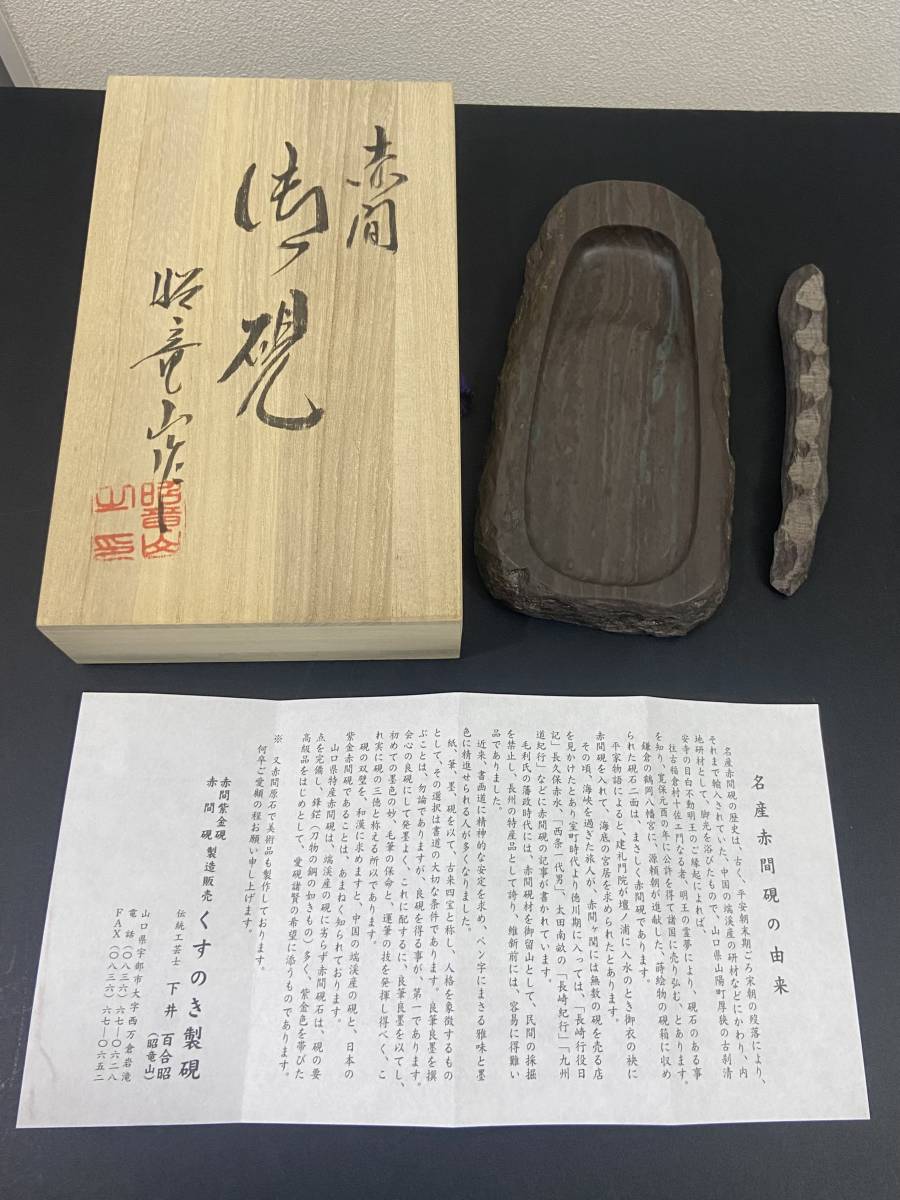 赤間
御硯
昭竜山作
昭竜山
之印
名産赤間硯の由来
名産赤間硯の歴史は、古く、平安朝末期ごろ宋朝の段落により、
それまで輸入されていた、中国の端溪産の研材などにかわり、内
地研材として、脚光を浴びたもので、山口県山陽町厚狭の古刹清
安寺の目白不動明王のご縁起によれば、
往古稲倉村十佐エ門なる者、明王の霊夢により、硯石のある事
を知り、寛保元酉の年に公許を得て諸国に売り弘む、とあります。
鎌倉の鶴岡八幡宮に、源頼朝が進献した、蒔絵物の硯箱に収め
られた硯石二面は、まさしく赤間硯であります。
平家物語によると、建礼門院が壇ノ浦に入水のとき御衣の袂に
赤間硯を入れて、海底の宮居を求められたとあります。
その頃、海峡を過ぎた旅人が、赤間ヶ関には無数の硯を売る店
を見かけたとあり室町時代より徳川期に入っては、「長崎行役日
記」長久保赤水、「西条一代男」、太田南畝の「長崎紀行」、「九州
道紀行」などに赤間硯の記事が書かれています。
毛利氏の藩政時代には、赤間硯材を御留山として、民間の採掘
を禁止し、長州の特産品として誇り、維新前には、容易に得難い
品でありました。
近来、書画道に精神的な安定を求め、ペン字にまさる雅味と墨
色に精進する人々が多くなりました。
紙、筆、墨、硯を以て、古来四宝と称し、人格を象徴するもの
として、その選択は書道の大切な条件であります。良筆良墨を撰
ぶことは、勿論でありますが、良硯を得る事が、第一であります。
会心の良硯にして発墨よく、これに配するに、良筆良墨を以てし、
初めての墨色の妙、毛筆の保命と、運筆の技を発揮し得べく、こ
れ実に硯の三徳と称える所以であります。
硯の双璧を、和漢に求めますと、中国の端溪産の硯と、日本の
紫金赤間硯であることは、あまねく知られております。
山口県特産赤間硯は、端溪産の硯に劣らず赤間硯石は、硯の要
点を完備し、鋒鋩(刀物の鋼の如きもの)多く、紫金色を帯びた
高級品をはじめとして、愛硯諸賢の希望に添うものであります。
※ 又赤間原石で美術品も製作しております。
何卒ご愛顧の程お願い申し上げます。
赤間紫金硯
赤間硯 製造販売 くすのき製硯
伝統工芸士 下井 百合昭
(昭竜山)
山口県宇部市大字西万倉岩滝
電話(〇八三六)六七-〇六二八
FAX(〇八三六)六七-〇六五二